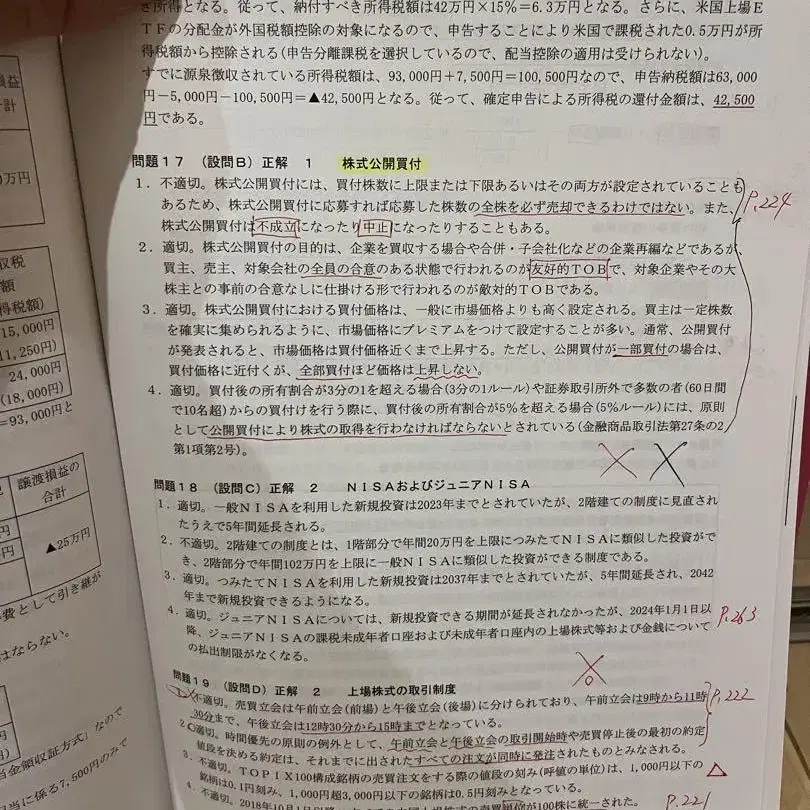 き所得となる。従って、納付すべき所得税額は42万円×15％＝6.3万円となる。さらに、米国上場Ｅ
ＴＦの分配金が外国税額控除の対象になるので、申告することにより米国で課税された0.5万円が所
得税額から控除される(申告分離課税を選択しているので、配当控除の適用は受けられない)。
すでに源泉徴収されている所得税額は、93,000円＋7,500円＝100,500円なので、申告納税額は63,000
円－5,000円－100,500円＝▲42,500円となる。従って、確定申告による所得税の還付金額は、42,500
円である。
問題１７ （設問Ｂ）正解 １ 株式公開買付
1．不適切。株式公開買付には、買付株数に上限または下限あるいはその両方が設定されていることも
あるため、株式公開買付に応募すれば応募した株数の全株を必ず売却できるわけではない。また、
株式公開買付は不成立になったり中止になったりすることもある。
P.224
2．適切。株式公開買付の目的は、企業を買収する場合や合併・子会社化などの企業再編などであるが、
買主、売主、対象会社の全員の合意のある状態で行われるのが友好的ＴＯＢで、対象企業やその大
株主との事前の合意なしに仕掛ける形で行われるのが敵対的ＴＯＢである。
3．適切。株式公開買付における買付価格は、一般に市場価格よりも高く設定される。買主は一定株数
を確実に集められるように、市場価格にプレミアムをつけて設定することが多い。通常、公開買付
が発表されると、市場価格は買付価格近くまで上昇する。ただし、公開買付が一部買付の場合は、
買付価格に近付くが、全部買付ほど価格は上昇しない。
4．適切。買付後の所有割合が3分の1を超える場合(3分の1ルール)や証券取引所外で多数の者(60日間
で10名超)からの買付けを行う際に、買付後の所有割合が5％を超える場合(5％ルール)には、原則
として公開買付により株式の取得を行わなければならないとされている(金融商品取引法第27条の2
第1項第2号)。
問題１８ （設問Ｃ）正解 ２ ＮＩＳＡおよびジュニアＮＩＳＡ
1．適切。一般ＮＩＳＡを利用した新規投資は2023年までとされていたが、2階建ての制度に見直され
たうえで5年間延長される。
2．不適切。2階建ての制度とは、1階部分で年間20万円を上限につみたてＮＩＳＡに類似した投資がで
き、2階部分で年間102万円を上限に一般ＮＩＳＡに類似した投資ができる制度である。
3．適切。つみたてＮＩＳＡを利用した新規投資は2037年までとされていたが、5年間延長され、2042
年まで新規投資できるようになる。
4．適切。ジュニアＮＩＳＡについては、新規投資できる期間が延長されなかったが、2024年1月1日以
降、ジュニアＮＩＳＡの課税未成年者口座および未成年者口座内の上場株式等および金銭について
の払出制限がなくなる。
P.263
問題１９ （設問Ｄ）正解 ２ 上場株式の取引制度
不適切。売買立会は午前立会(前場)と午後立会(後場)に分けられており、午前立会は9時から11時
30分まで、午後立会は12時30分から15時までとなっている。
P.222
2 時間優先の原則の例外として、午前立会と午後立会の取引開始時や売買停止後の最初の約定
値段を決める約定は、それまでに出されたすべての注文が同時に発注されたものとみなされる。
3．不適切。ＴＯＰＩＸ100構成銘柄の売買注文をする際の値段の刻み(呼値の単位)は、1,000円以下の
銘柄は0.1円刻み、1,000円超3,000円以下の銘柄は0.5円刻みとなっている。
4．不適切。2018年10月1日
売買単位が100株に統一された。
P.221
損益
計
万円
収税
額
得税額)
15,000円
11,250円)
24,000円
(18,000円)
＝93,000円と
譲渡損益の
合計
▲25万円
費として引き継が
はならない。
金額収証方式」なので
当に係る7,500円のみで